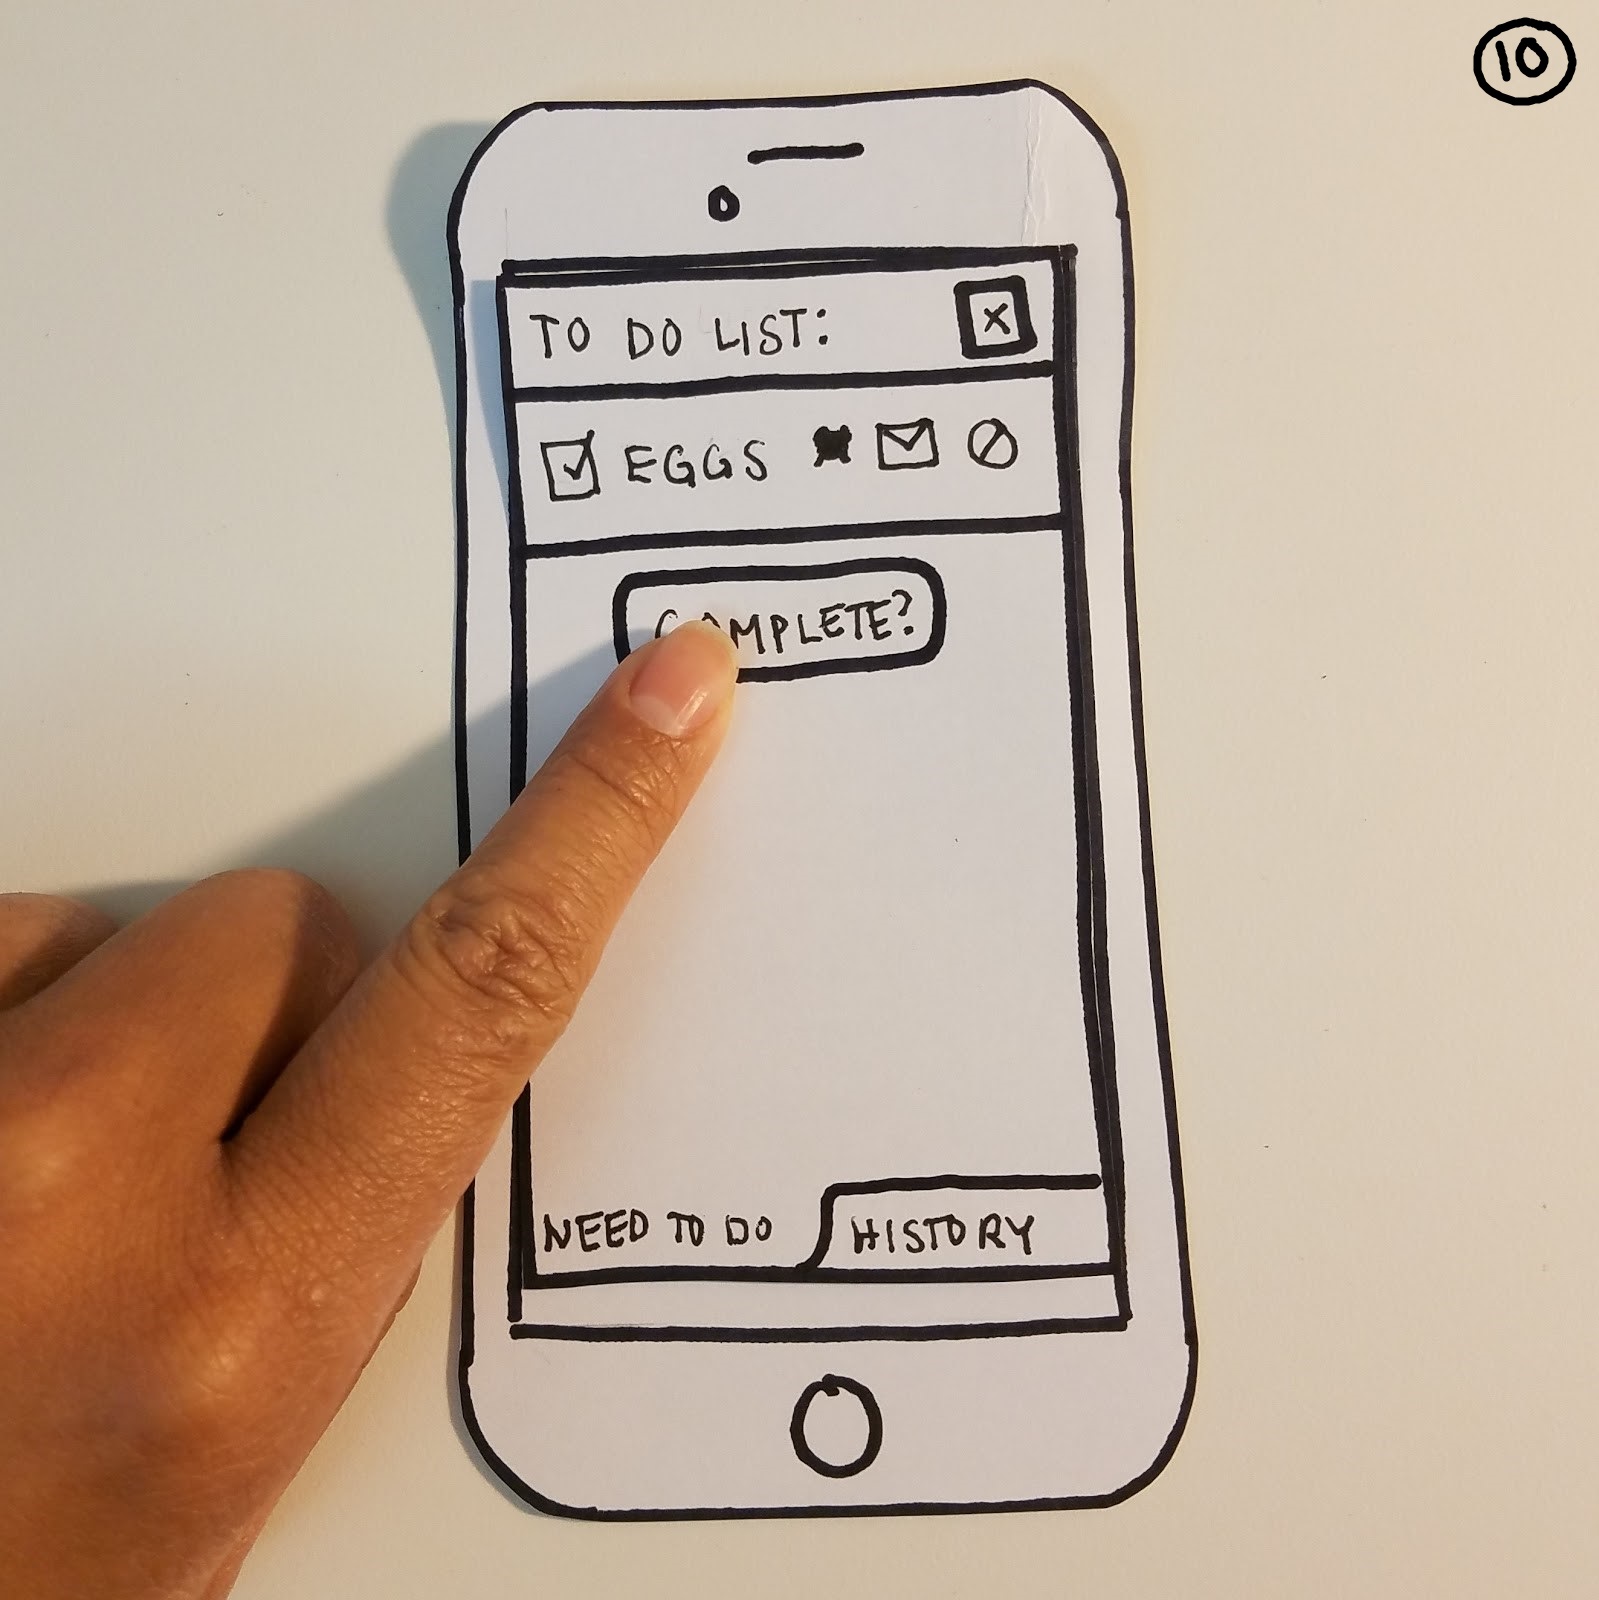 10
TO DO LIST: X
EGGS
COMPLETE?
NEED TO DO HISTORY